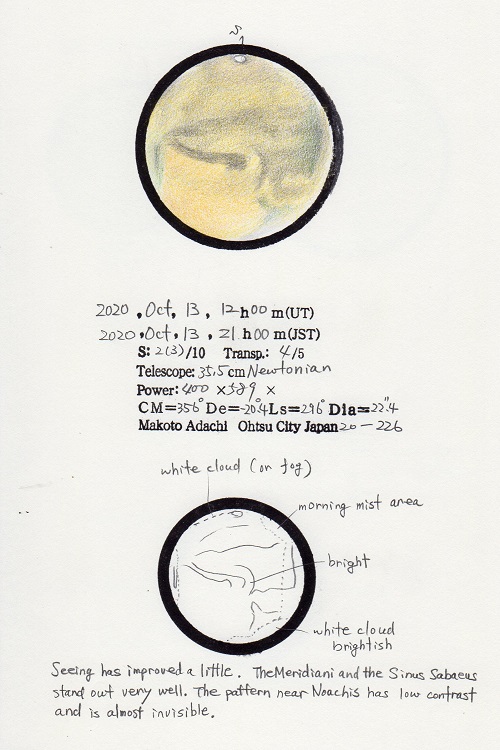 S
2020, Oct, 13, 12h00m(UT)
2020, Oct, 13, 21h00m(JST)
S: 2(3)/10 Transp.: 4/5
Telescope: 35.5cm Newtonian
Power: 400 × 589 ×
CM=356° De=-20.°4 Ls=296° Dia=22."4
Makoto Adachi Ohtsu City Japan 20-226
white cloud (or fog)
morning mist area
bright
white cloud
brightish
Seeing has improved a little. The Meridiani and the Sinus Sabaeus
stand out very well. The pattern near Noachis has low contrast
and is almost invisible.